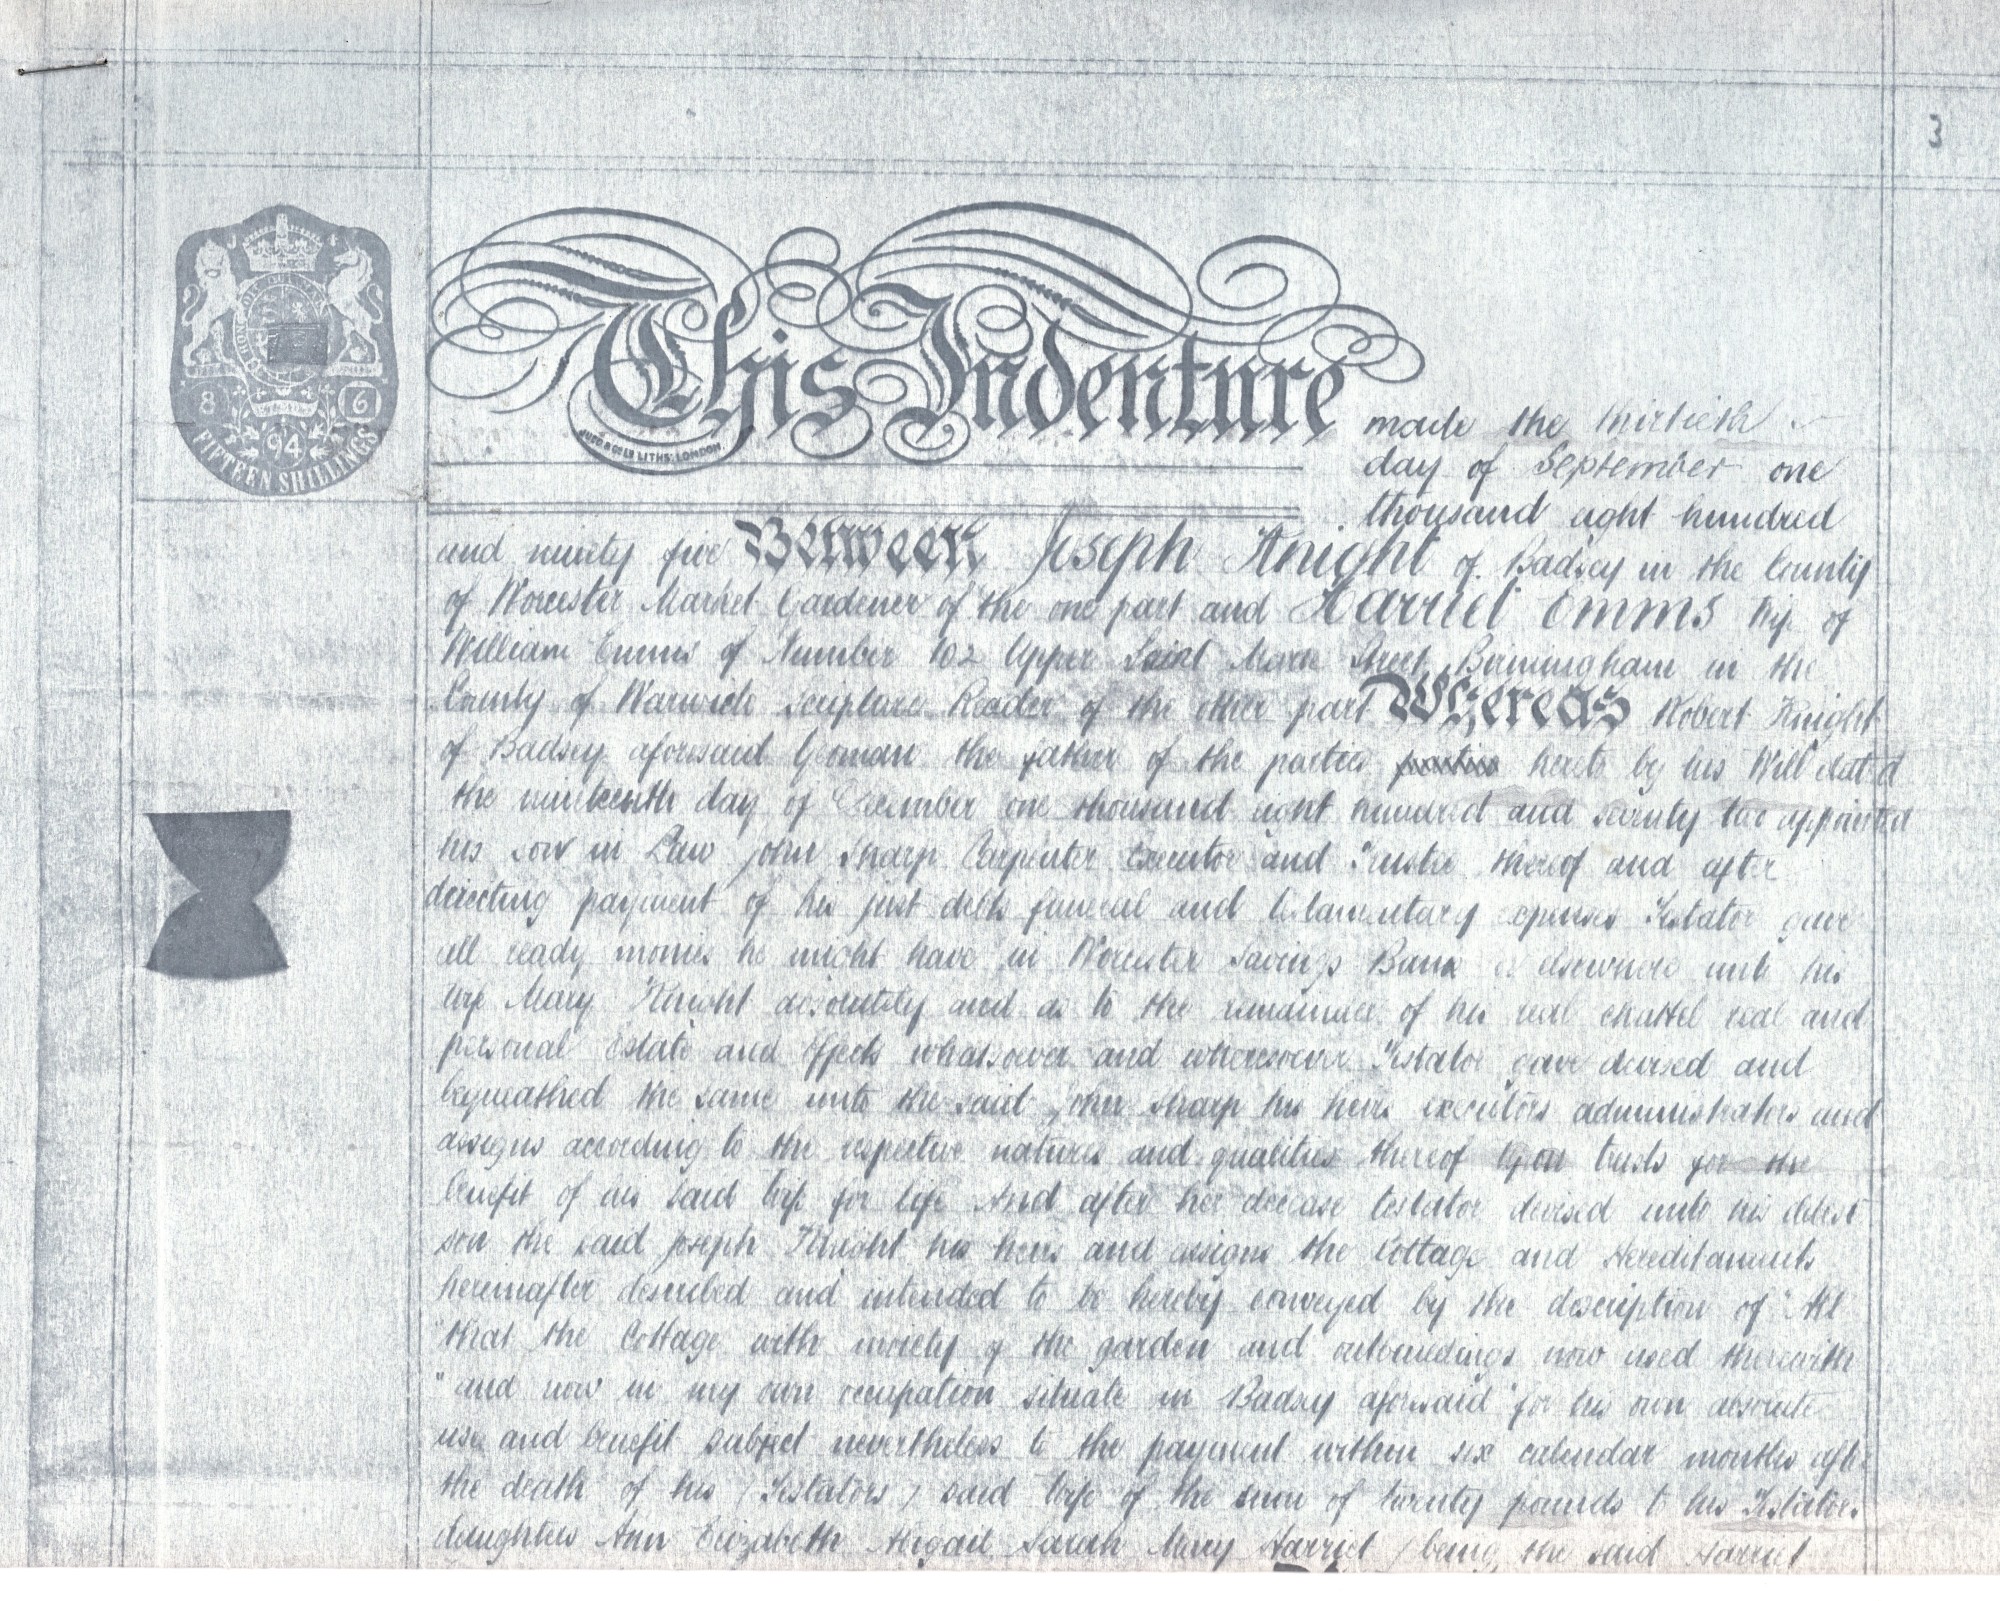 3
8 6
94
FIFTEEN SHILLINGS
This Indenture
JUDD & CO LD LITHS. LONDON
made the thirtieth
day of September one
thousand eight hundred
and ninety five Between Joseph Knight of Badsey in the County
of Worcester Market Gardener of the one part and Harriet Emms Wife of
William Emms of Number 102 Upper Saint Mark Street Birmingham in the
County of Warwick Scripture Reader of the other part Whereas Robert Knight
of Badsey aforesaid Yeoman the father of the parties hereto by his Will dated
the nineteenth day of December one thousand eight hundred and seventy two appointed
his son in Law John Sharp Carpenter Executor and Trustee thereof and after
directing payment of his just debts funeral and testamentary expenses Testator gave
all ready monies he might have in Worcester Savings Bank or elsewhere unto his
wife Mary Knight absolutely and as to the remainder of his real chattel real and
personal Estate and Effects whatsoever and wheresoever Testator gave devised and
bequeathed the same unto the said John Sharp his heirs executors administrators and
assigns according to the respective natures and qualities thereof Upon trusts for the
benefit of his said wife for life And after her decease testator devised unto his eldest
son the said Joseph Knight his heirs and assigns the Cottage and Hereditaments
hereinafter described and intended to be hereby conveyed by the description of "All
"that the Cottage with moiety of the garden and outbuildings now used therewith
"and now in my own occupation situate in Badsey aforesaid" for his own absolute
use and benefit subject nevertheless to the payment within six calendar months after
the death of his (Testators) said wife of the sum of twenty pounds to his Testators
daughters Ann Elizabeth Abigail Sarah Mary Harriet (being the said Harriet